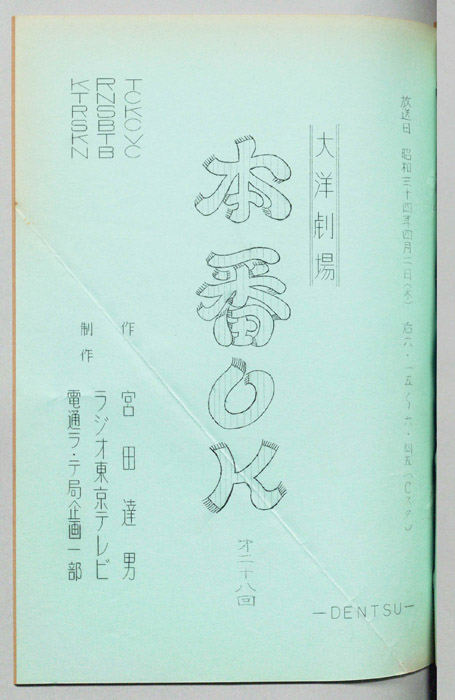 放送日 昭和三十四年四月二日(木) 后六・一五〜六・四五
大洋劇場
本番OK
第二十八回
—DENTSU—
作 宮田達男
制作 ラジオ東京テレビ
電通ラ・テ局企画一部
KRT
TNC
RSK
SBC
KTV
NBC